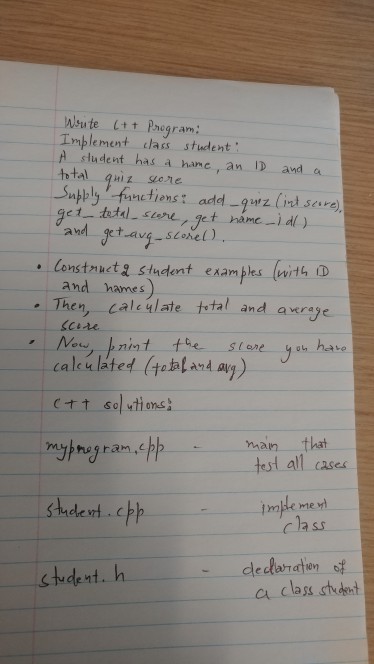 Write C++ Program:
Implement class student:
A student has a name, an ID and a
total quiz score
Supply functions: add_quiz (int score),
get_total_score, get name_id()
and get_avg_score().
• Construct 2 student examples (with ID
and names)
• Then, calculate total and average
score
• Now, print the score you have
calculated (total and avg)
C++ solutions:
myprogram.cpp - main that
test all cases
student.cpp - implement
class
student.h - declaration of
a class student